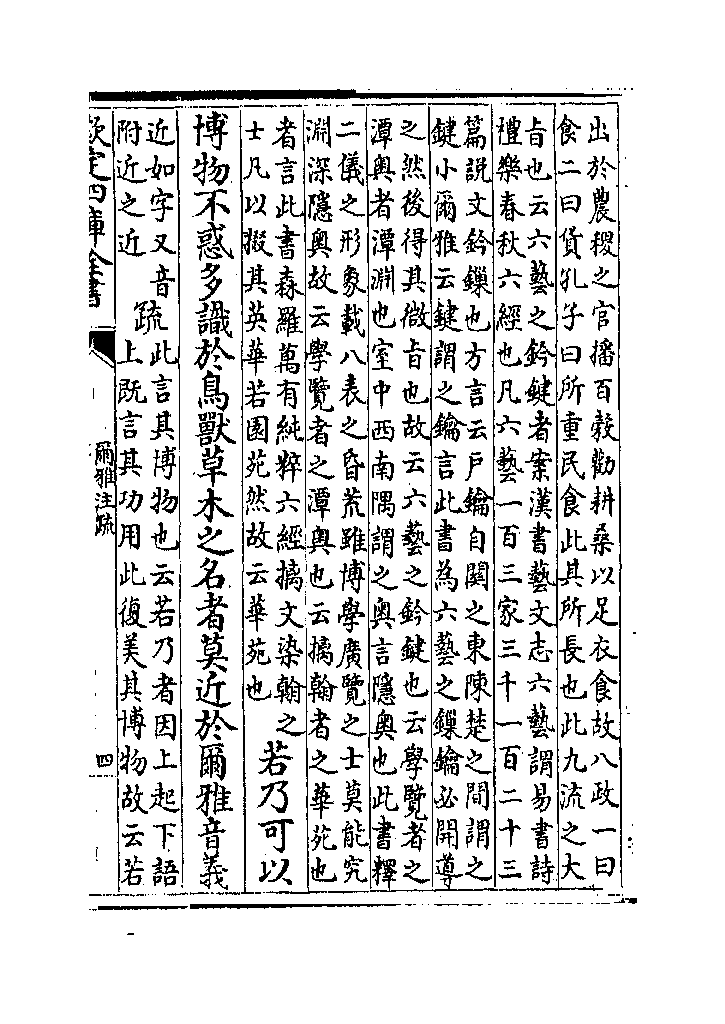 出於農稷之官播百穀勸耕桑以足衣食故八政一曰
食二曰貨孔子曰所重民食此其所長也此九流之大
㫖也云六藝之鈐鍵者案漢書藝文志六藝謂易書詩
禮樂春秋六經也凡六藝一百三家三千一百二十三
篇説文鈐鏁也方言云戸鑰自闗之東陳楚之間謂之
鍵小爾雅云鍵謂之鑰言此書為六藝之鏁鑰必開導
之然後得其微㫖也故云六藝之鈐鍵也云學覽者之
潭奥者潭淵也室中西南隅謂之奥言隱奥也此書釋
二儀之形象載八表之昏荒雖博學廣覽之士莫能究
淵深隱奥故云學覽者之潭奥也云摛翰者之華苑也
者言此書森羅萬有純粹六經摛文染翰之
士凡以掇其英華若園苑然故云華苑也
若乃可以
博物不惑多識於鳥獸草木之名者莫近於爾雅音義
近如字又音
附近之近
疏
此言其博物也云若乃者因上起下語
上既言其功用此復美其博物故云若
欽定四庫全書
爾雅注疏
四